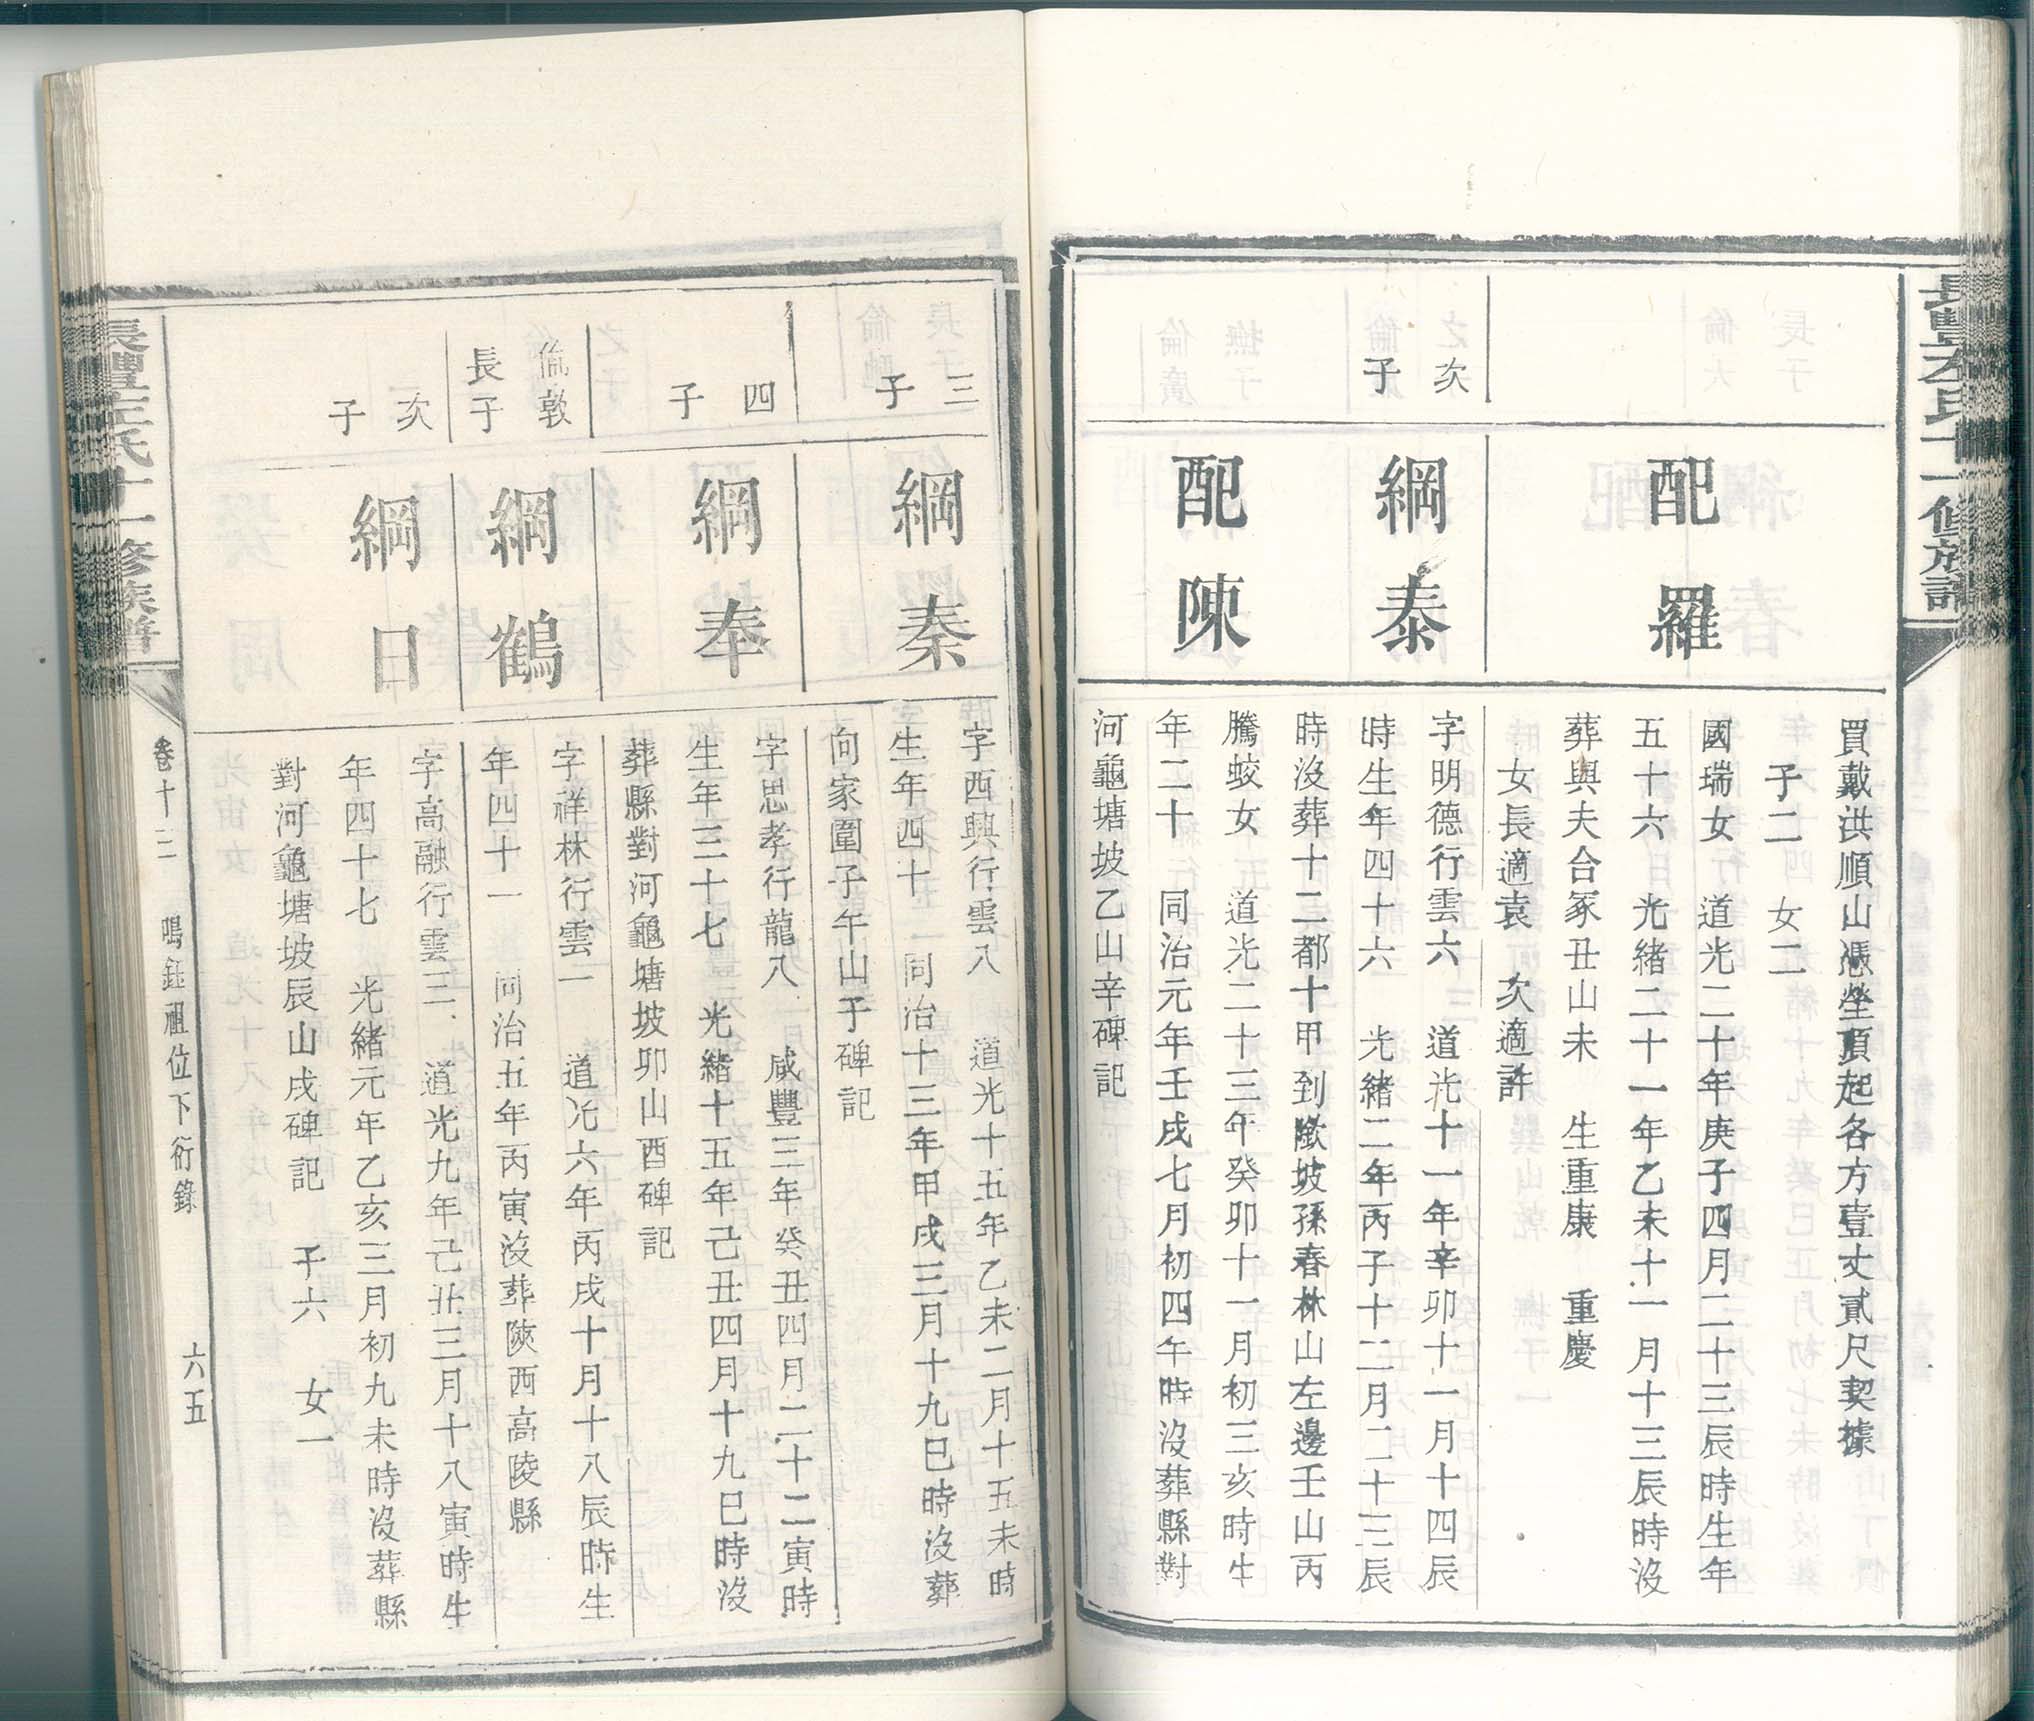 長豐左氏十一修族譜
買戴洪順山憑塋頂起各方壹丈貳尺契據
子二　女二
配羅
國瑞女　道光二十年庚子四月二十三辰時生年
五十六　光緒二十一年乙未十一月十三辰時沒
葬與夫合冢丑山未　生重康　重慶
女長適袁　次適許
次子
綱泰
字明德行雲六　道光十一年辛卯十一月十四辰
時生年四十六　光緒二年丙子十二月二十三辰
時沒葬十二都十甲到歘坡孫春林山左邊壬山丙
配陳
騰蛟女　道光二十三年癸卯十一月初三亥時生
年二十　同治元年壬戌七月初四午時沒葬縣對
河龜塘坡乙山辛碑記
三子
綱秦
字西興行雲八　道光十五年乙未二月十五未時
生年四十　同治十三年甲戌三月十九巳時沒葬
向家圍子午山子碑記
四子
綱奉
字思孝行龍八　咸豐三年癸丑四月二十二寅時
生年三十七　光緒十五年己丑四月十九巳時沒
葬縣對河龜塘坡卯山酉碑記
倫敦
長子
綱鶴
字祥林行雲二　道光六年丙戌十月十八辰時生
年四十一　同治五年丙寅沒葬陝西高陵縣
次子
綱日
字高融行雲三　道光九年己丑三月十八寅時生
年四十七　光緒元年乙亥三月初九未時沒葬縣
對河龜塘坡辰山戌碑記　子六　女一
長豐左氏十一修族譜
卷十三　鳴鈺祖位下衍錄　六五